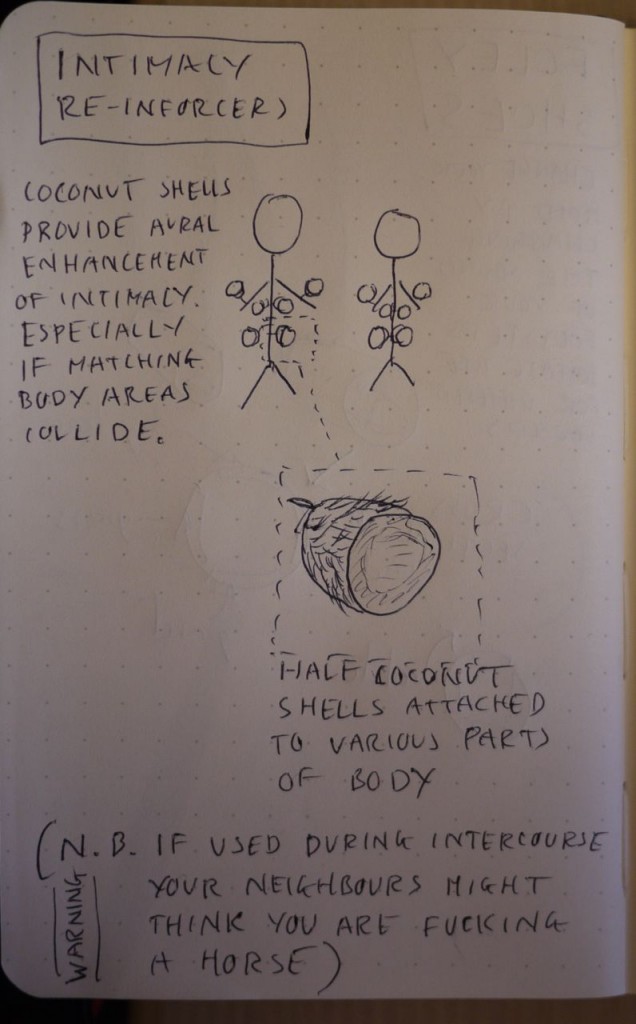 INTIMACY
RE-INFORCERS
COCONUT SHELLS
PROVIDE AURAL
ENHANCEMENT
OF INTIMACY.
ESPECIALLY
IF MATCHING
BODY AREAS
COLLIDE.
HALF COCONUT
SHELLS ATTACHED
TO VARIOUS PARTS
OF BODY
(N.B. IF USED DURING INTERCOURSE
WARNING
YOUR NEIGHBOURS MIGHT
THINK YOU ARE FUCKING
A HORSE)